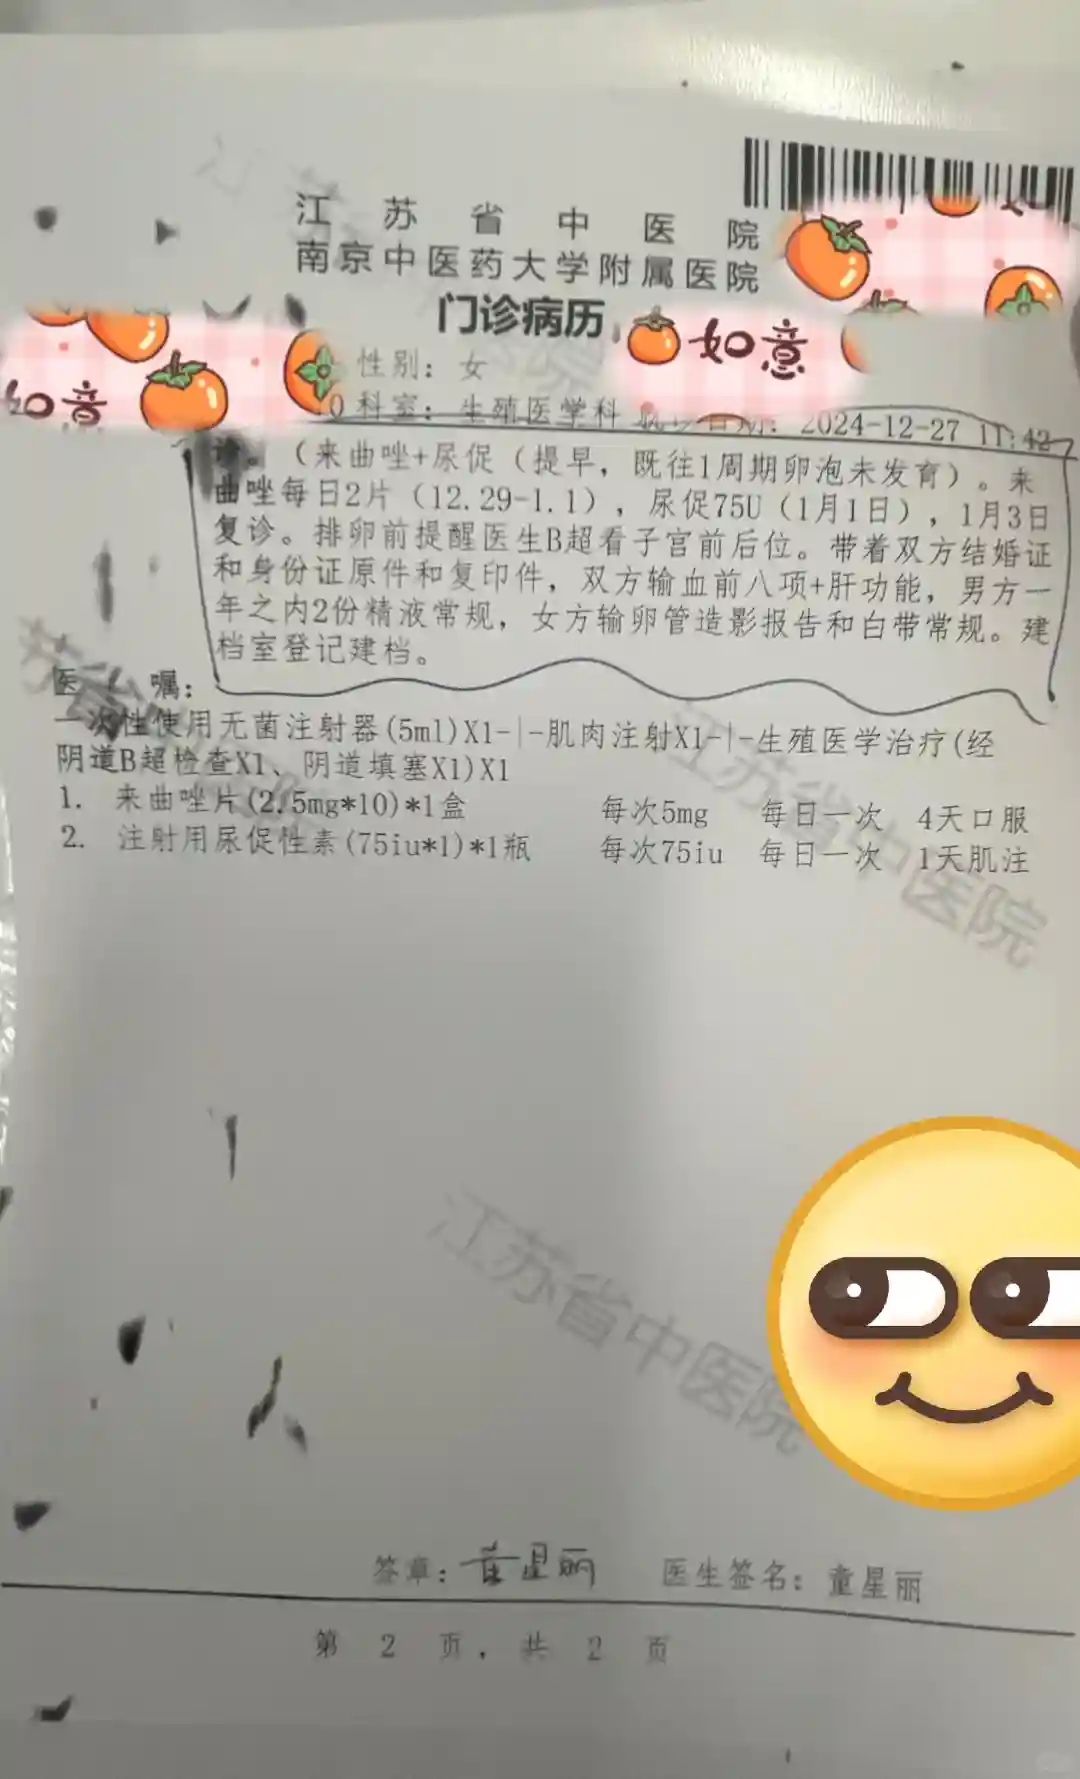 江苏省中医院
南京中医药大学附属医院
门诊病历
如意
如意
性别: 女
科室: 生殖医学科 2024-12-27 11:42
诊。（来曲唑+尿促（提早，既往1周期卵泡未发育）。来
曲唑每日2片（12.29-1.1），尿促75U（1月1日），1月3日
复诊。排卵前提醒医生B超看子宫前后位。带着双方结婚证
和身份证原件和复印件，双方输血前八项+肝功能，男方一
年之内2份精液常规，女方输卵管造影报告和白带常规。建
档室登记建档。
医 嘱:
一次性使用无菌注射器(5ml)X1-|-肌肉注射X1-|-生殖医学治疗(经
阴道B超检查X1、阴道填塞X1)X1
1. 来曲唑片(2.5mg*10)*1盒 每次5mg 每日一次 4天口服
2. 注射用尿促性素(75iu*1)*1瓶 每次75iu 每日一次 1天肌注
江苏省中医院
江苏省中医院
签章: 童星丽 医生签名: 童星丽
第 2 页，共 2 页